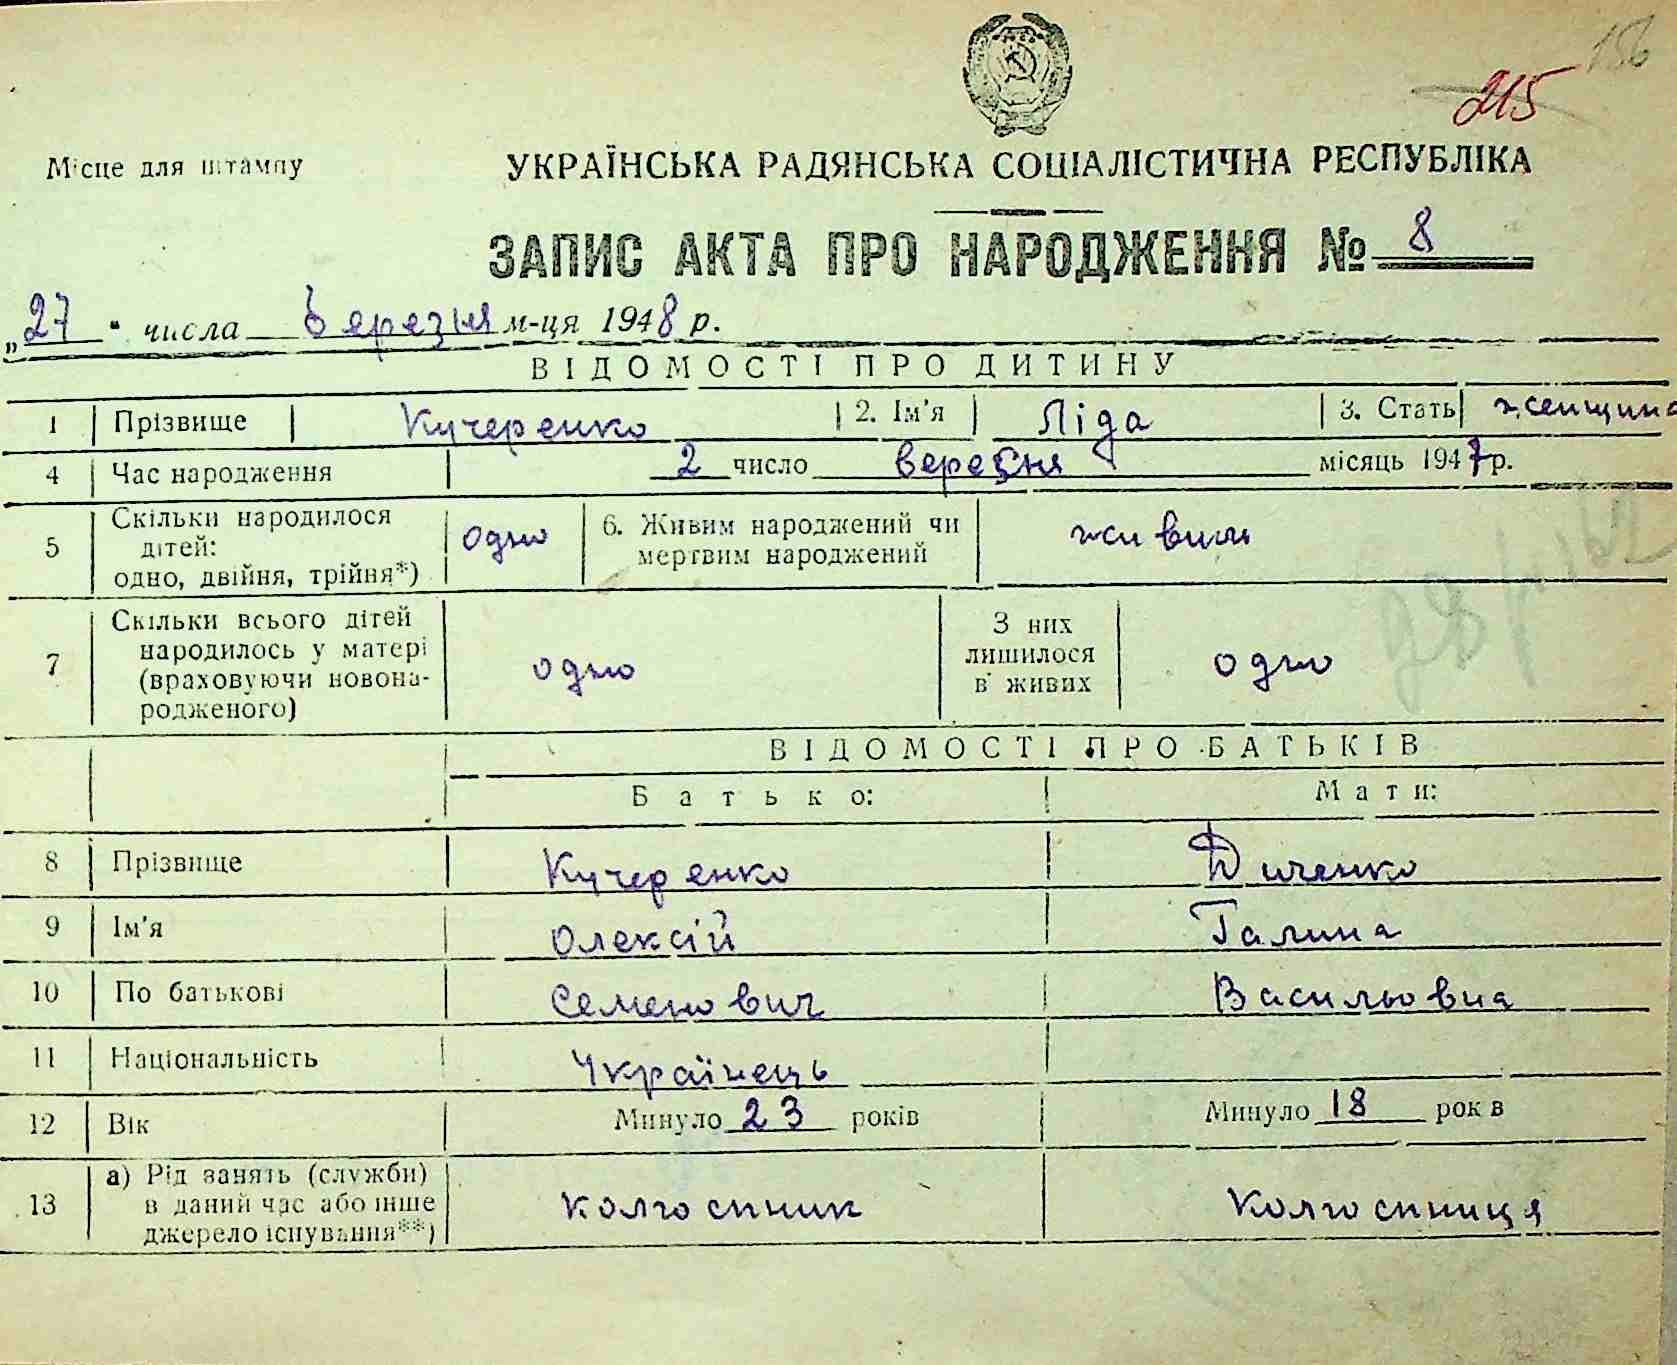 156
215
Місце для штампу
УКРАЇНСЬКА РАДЯНСЬКА СОЦІАЛІСТИЧНА РЕСПУБЛІКА
ЗАПИС АКТА ПРО НАРОДЖЕННЯ № 8
„27" числа березня м-ця 1948 р.
ВІДОМОСТІ ПРО ДИТИНУ
1 Прізвище Кучеренко 2. Ім'я Ліда 3. Стать женщина
4 Час народження 2 число вересня місяць 1947 р.
5 Скільки народилося дітей: одно, двійня, трійня*) одно 6. Живим народжений чи мертвим народжений живим
7 Скільки всього дітей народилось у матері (враховуючи новонародженого) одно З них лишилося в живих одно
ВІДОМОСТІ ПРО БАТЬКІВ
Батько: Мати:
8 Прізвище Кучерянко Диченко
9 Ім'я Олексій Галина
10 По батькові Семенович Васильовна
11 Національність Українець
12 Вік Минуло 23 років Минуло 18 рок в
13 а) Рід занять (служби) в даний час або інше джерело існування**) колгоспник Колгоспниця